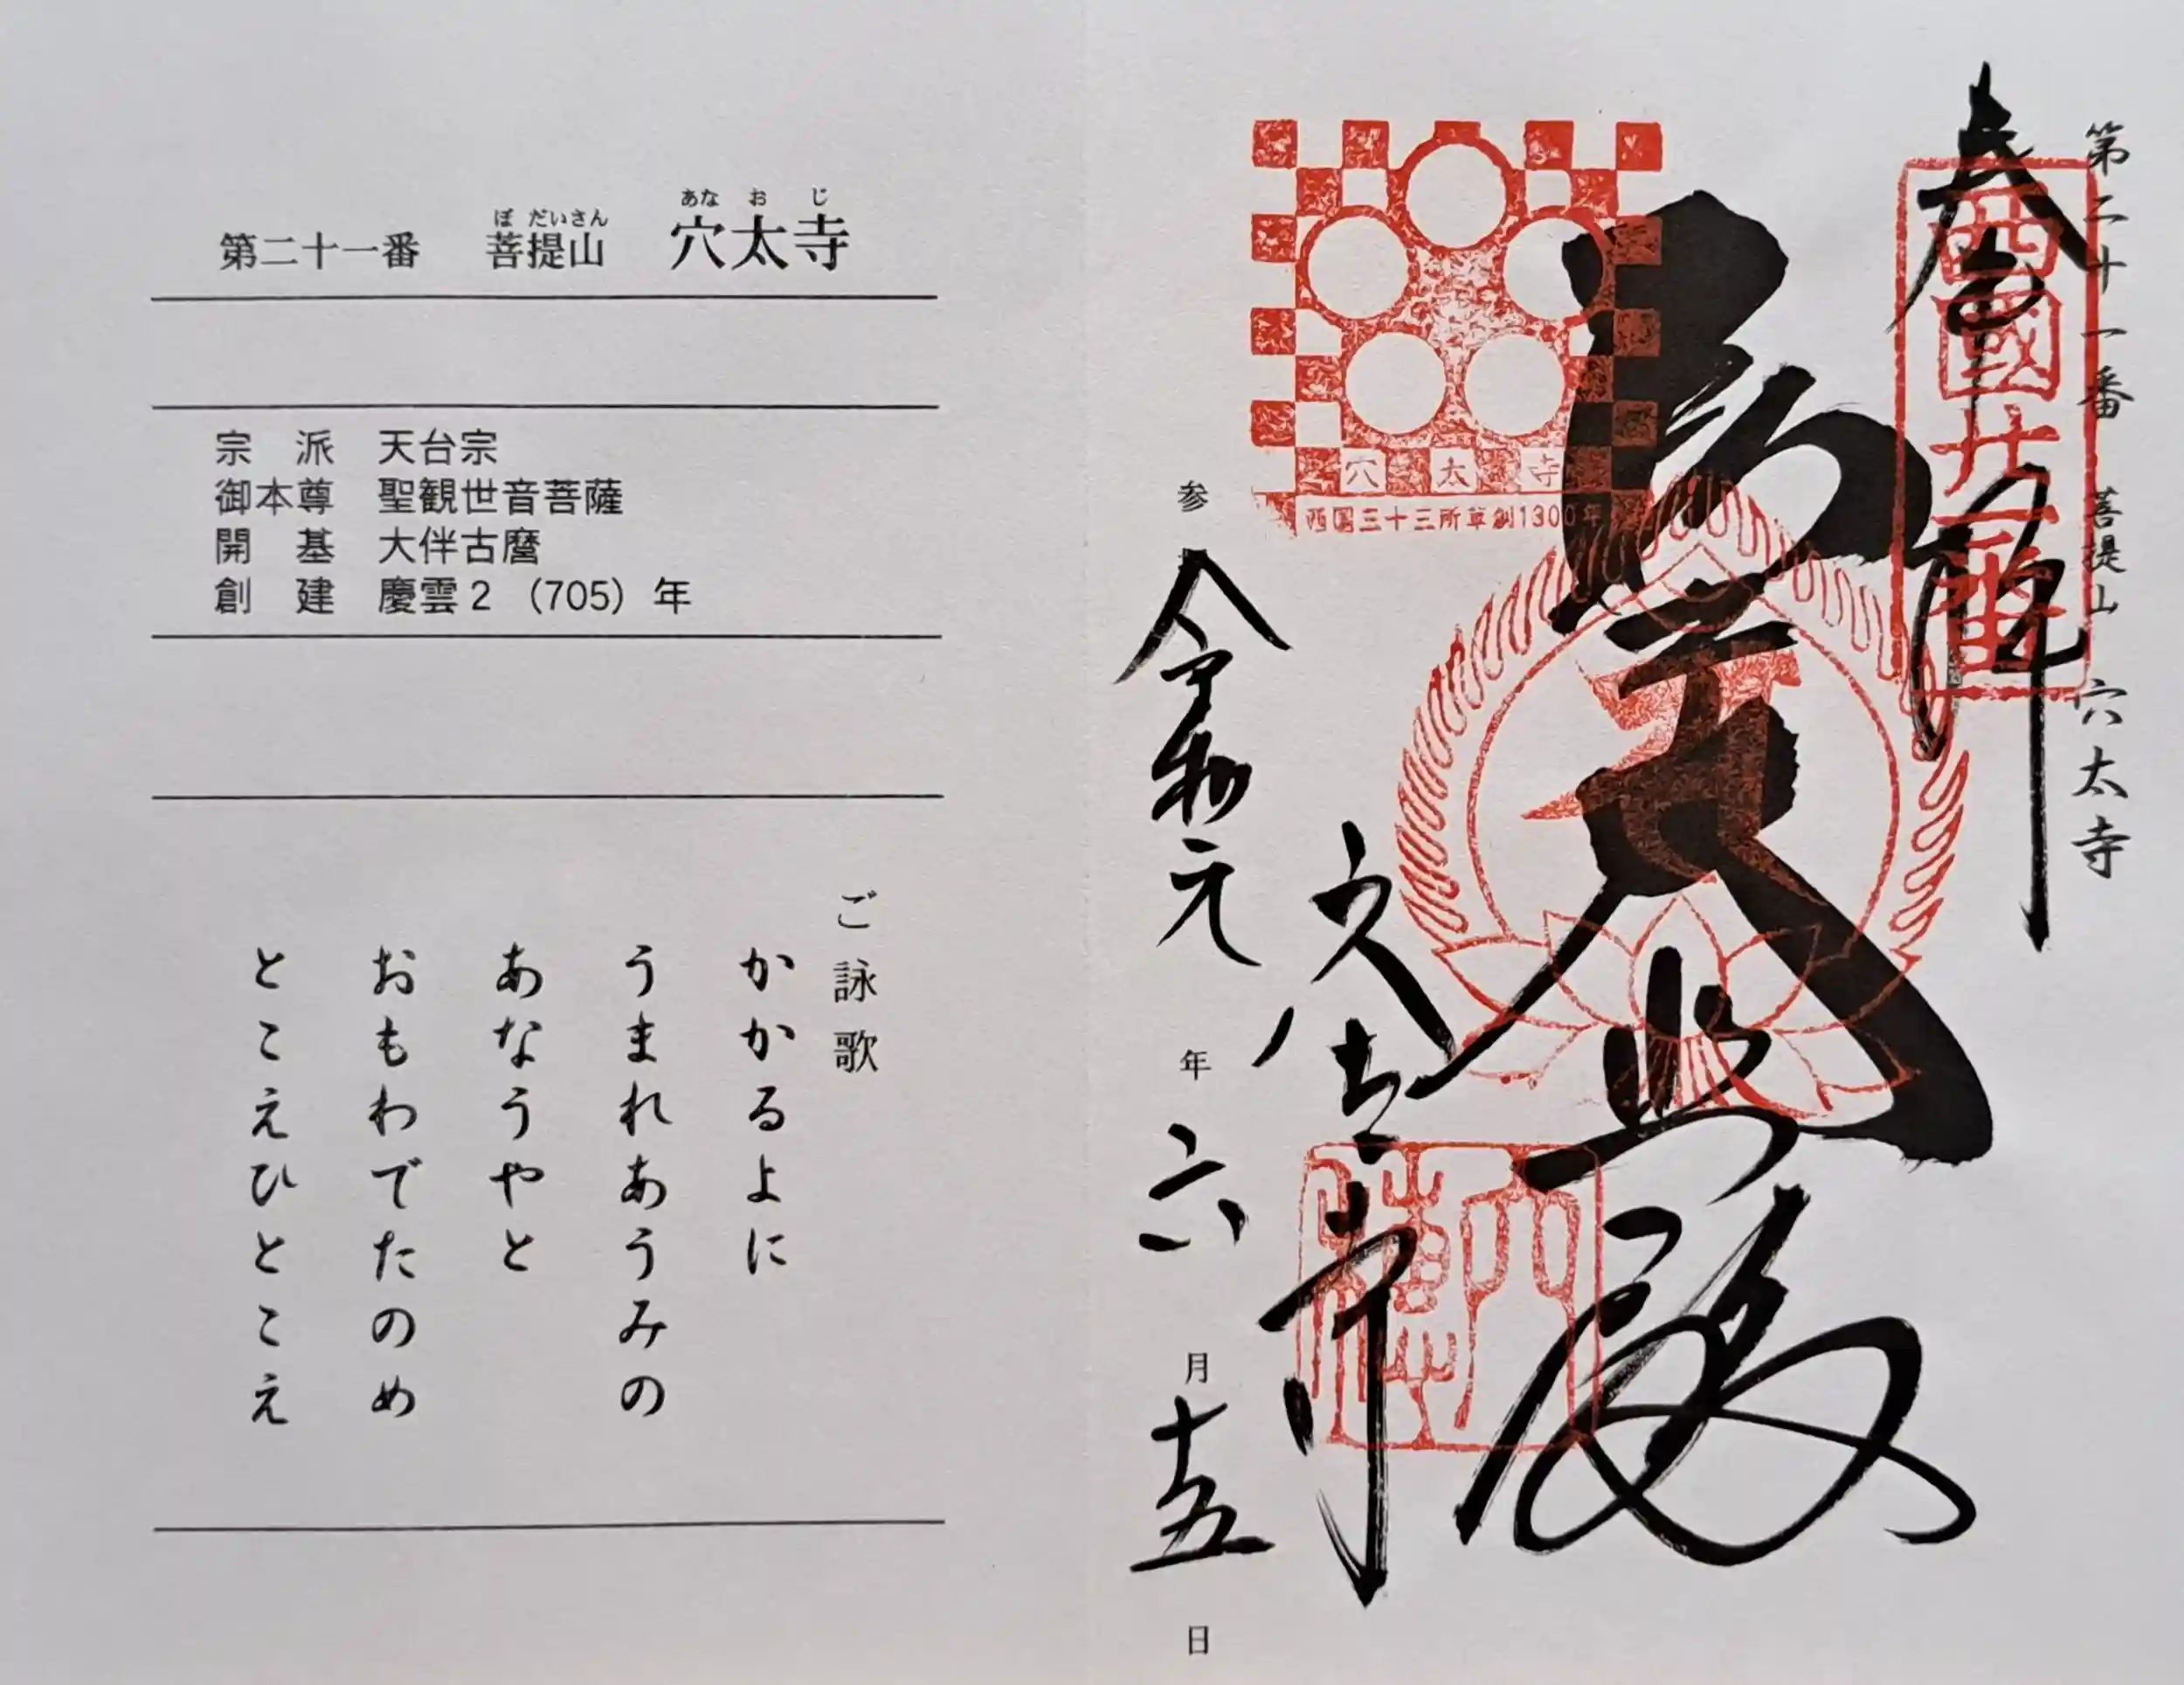 第二十一番 菩提山 穴太寺
ぼ だいさん あな お じ
宗 派 天台宗
御本尊 聖観世音菩薩
開 基 大伴古麿
創 建 慶雲2（705）年
ご詠歌
かかるよに
うまれあうみの
あなうやと
おもわでたのめ
とこえひとこえ
第二十一番 菩提山 穴太寺
奉拝
西國廿一番
穴太寺
西国三十三所草創1300年
穴太寺
参
令和元年六月十五日